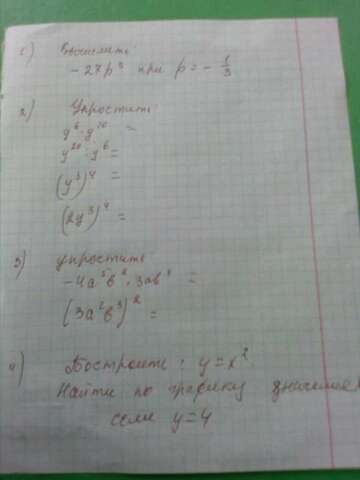 1) Вычислить
- 27p³ при p = - 1/3
2) Упростить:
y⁶ · y²⁰ =
y²⁰ : y⁶ =
(y³)⁴ =
(2y³)⁴ =
3) упростить
- 4a⁵b² · 3ab⁴ =
(3a²b³)² =
4) Построить: y = x²
Найти по графику значение
если y = 4